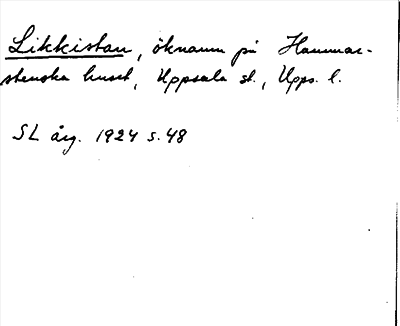 Likkistan, öknamn på Hammar-
stenska huset, Uppsala st., Upps. l.
SL årg. 1924 s. 48